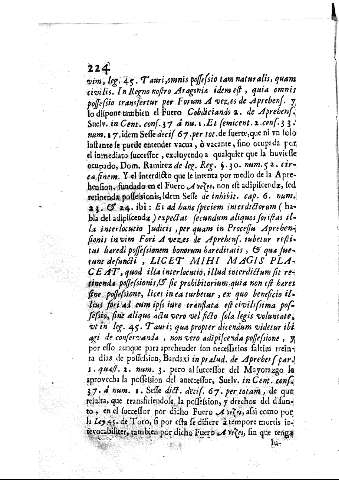 224
vim, leg. 45. Tauri, omnis possessio tam naturalis, quam
civilis. In Regno nostro Aragonia idem est, quia omnis
possessio transfertur per Forum A vezes de Aprehens. y
lo dispone tambien el Fuero Cobdiciando 2. de Aprehens.
Suelv. in Cent. cons. 37. à nu. 1. Et semicent. 2. cons. 33.
num. 17. idem Sesse decis. 67. per tot. de suerte, que ni un solo
instante se puede entender vacua, ò vacante, sino ocupada por
el inmediato successor, excluyendo à qualquier que la huviesse
ocupado, Dom. Ramirez de leg. Reg. §. 30. num. 52. cir-
ca finem. Y el interdicto que se intenta por medio de la Apre-
hension, fundada en el Fuero A vezes, non est adipiscendæ, sed
retinendæ possessionis, idem Sesse de inhibit. cap. 6. num.
23. & 24. ibi: Et ad hanc speciem interdictorum (ha-
bla del adipiscendæ) expectat secundum aliquos foristas il-
la interlocutio Judicis, per quam in Processu Aprehen-
sionis in vim Fori A vezes de Aprehens. iubetur resti-
tui hæredi possessionem bonorum hæreditatis, & quæ fue-
runt defuncti, LICET MIHI MAGIS PLA-
CEAT, quod illa interlocutio, illud interdictum sit re-
tinendæ possessionis, & sic prohibitorium quia non est hæres
sine possessione, licet in ea turbetur, ex quo beneficio il-
lius fori ad eum ipso iure translata est civilissima pos-
sessio, sine aliquo actu vero vel ficto sola legis voluntate,
ut in leg. 45. Tauri; qua propter dicendum videtur ibi
agi de conservanda, non vero adipiscenda possessione, y
por esso aunque para aprehender son necessarios saltem trein-
ta dias de possession, Bardaxi in prælud. de Aprehens. part.
1. quæst. 1. num. 3. pero al successor del Mayorazgo le
aprovecha la possession del antecessor, Suelv. in Cent. cons.
37. à num. 1. Sesse dict. decis. 67. per totam, de que
resulta, que transfiriendose la possession, y drechos del difun-
to, en el successor por dicho Fuero A vezes, assi como por
la Ley 45. de Toro, si por esta se difiere à tempore mortis ir-
revocabiliter, tambien por dicho Fuero A vezes, sin que tenga
lu-